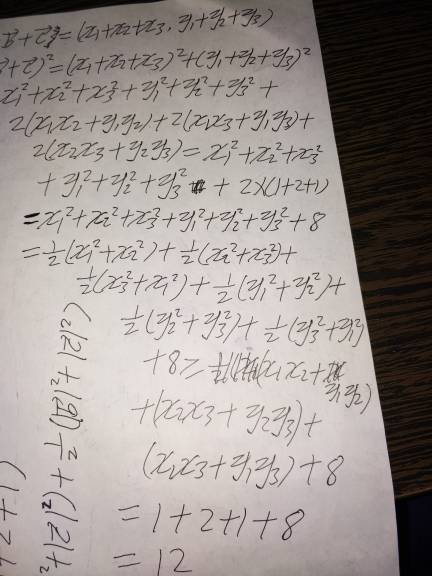 +ā+c̄=(x1+x2+x3, y1+y2+y3)
+c̄)²=(x1+x2+x3)²+(y1+y2+y3)²
x1²+x2²+x3²+y1²+y2²+y3²+
2(x1x2+y1y2)+2(x1x3+y1y3)+
2(x2x3+y2y3)=x1²+x2²+x3²
+y1²+y2²+y3²+2×(1+2+1)
=x1²+x2²+x3²+y1²+y2²+y3²+8
=½(x1²+x2²)+½(x2²+x3²)+
½(x3²+x1²)+½(y1²+y2²)+
½(y2²+y3²)+½(y3²+y1²)
+8≥(x1x2+y1y2)
+(x2x3+y2y3)+
(x1x3+y1y3)+8
=1+2+1+8
=12